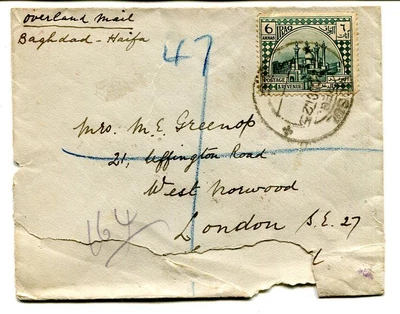 Overland Mail
Baghdad - Haifa
47
6 IRAQ
ANNAS
POSTAGE
REVENUE
Mrs. M. E. Greenop
21, Uffington Road
West Norwood
London S.E. 27
164